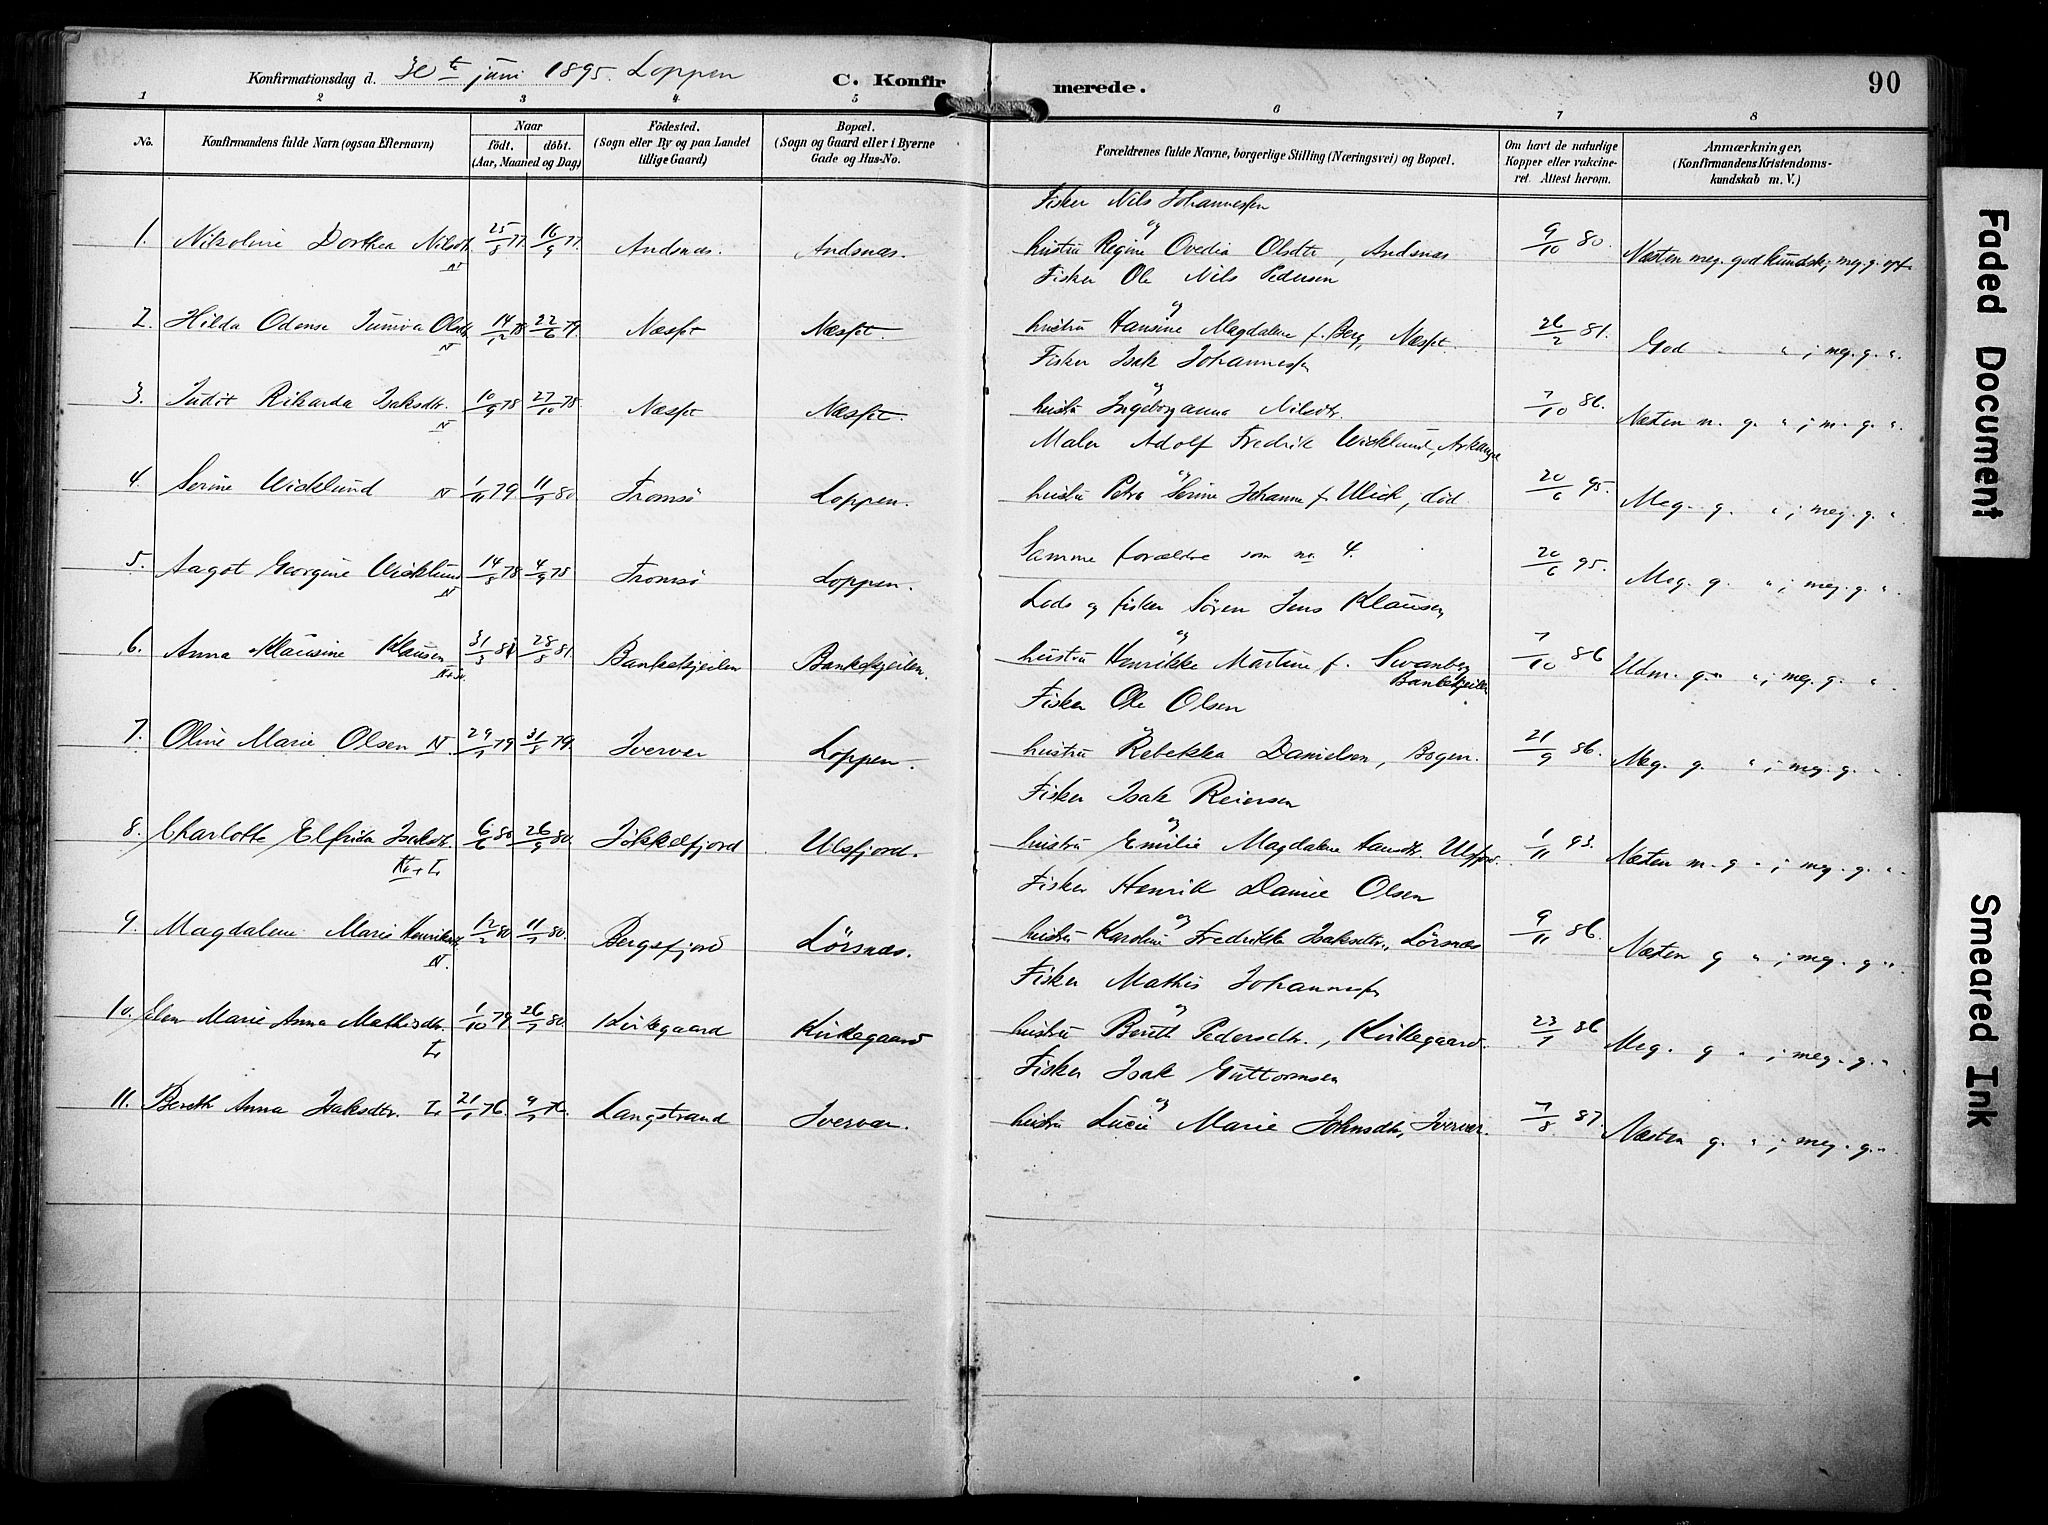 Konfirmationsdag d. 30te juni 1895. Loppen C. Konfirmerede. 90
1 2 3 4 5 6 7 8
No. Konfirmandens fulde Navn (ogsaa Efternavn) Naar födt. döbt. (Aar, Maaned og Dag) Födested. (Sogn eller By og paa Landet tillige Gaard) Bopæl. (Sogn og Gaard eller i Byerne Gade og Hus-No. Forældrenes fulde Navne, borgerlige Stilling (Næringsvei) og Bopæl. Om havt de naturlige Kopper eller vakcineret. Attest herom. Anmærkninger, (Konfirmandens Kristendomskundskab m. V.)
Fisker Nils Johannessen
1. Nikoline Dorthea Nilsdtr. N 25/8 77. 16/9 77. Andsnæs. Andsnæs. og hustru Regine Ovedia Olsdtr, Andsnæs 9/10 80. Næsten meg. god kundsk; meg. g.
Fisker Ole Nils Pedersen
2. Hilda Odense Juniva Olsdtr. N 14/12 78 22/6 79. Næsset Næsset. og hustru Hansine Magdalene f. Berg, Næsset. 26/2 81. God " ; meg. g. ".
Fisker Isak Johannessen
3. Judit Rikarda Isaksdtr. N 10/9 78 27/10 78. Næsset Næsset. og hustru Ingeborganna Nilsdtr. 7/10 86. Næsten m. g. " ; m. g. ".
Maler Adolf Fredrik Wicklund,
4. Serine Wicklund N 1/11 79 11/9 80. Tromsö Loppen. og hustru Petra Serine Johanne f. Ulich, död. 20/6 95. Meg. g. " ; meg. g. ".
5. Aagot Georgine Wicklund N 14/8 78 4/9 78 Tromsö Loppen. Samme forældre som no 4. 20/6 95. Meg. g. " ; meg. g. ".
Lods og fisker Sören Jens Klausen
6. Anna Klausine Klausen 31/3 81 28/8 81. Bankekjeilen Bankekjeilen. og hustru Henrikke Martine f. Svanberg Bankekjeilen 7/10 86 Udm. g. " ; meg. g. ".
Fisker Ole Olsen
7. Oline Marie Olsen N. 29/7 79 31/8 79. Ivervær Loppen. og hustru Rebekka Danielsen, Bogen. 21/9 86. Meg. g. " ; meg. g. ".
Fisker Isak Reiersen
8. Charlotte Elfrida Isaksdtr. 6/6 80 26/9 80. Jökkelfjord Ulsfjord. og hustru Emilie Magdalene Hansdtr. Ulsfjord. 1/11 93. Næsten m. g " ; meg. g. ".
Fisker Henrik Daniel Olsen
9. Magdalene Marie Henriksdtr N. 12/2 80 11/7 80. Bergsfjord Lörsnæs. og hustru Karoline Fredrikke Isaksdtr., Lörsnæs 9/11 86. Næsten g " ; meg. g ".
Fisker Mathis Johannessen
10. Elen Marie Anna Mathisdtr. L 1/10 79 26/7 80. Kirkegaard Kirkegaard og hustru Berith Pedersdtr., Kirkegaard. 23/7 86 Meg. g " ; meg. g. ".
Fisker Isak Guttormsen
11. Bereth Anna Isaksdtr. L 21/1 76. 9/7 76. Langstrand Ivervær. og hustru Lucie Marie Johnsdtr, Ivervær. 7/8 87. Næsten g. " ; meg. g. ".
Faded Document
Smeared Ink